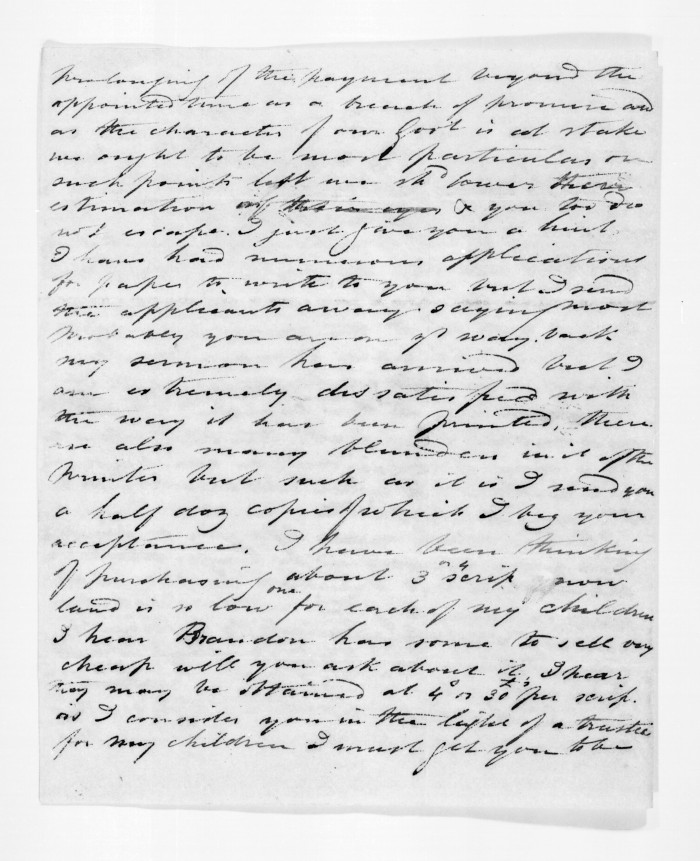 prolonging of the payment beyond the
appointed time as a breach of promise and
as the character of our Govt is at stake
we ought to be most particular on
such points lest we shd lower their
estimation in their eyes & you too do
not escape. I just give you a hint
I have had numerous applications
for paper to write to you but I send
the applicants away saying most
probably you are on yr way back
my sermon has arrived but I
am extremely dissatisfied with
the way it has been printed, there
are also many blunders in it of the
Printer but such as it is I send you
a half doz copies of which I beg your
acceptance. I have been thinking
of purchasing about 3 or 4 scrip now
land is so low one for each of my children
I hear Brandon has some to sell very
cheap will you ask about it. I hear
they may be obtained at or 30 per scrip.
as I consider you in the light of a trustee
for my children I must get you to be